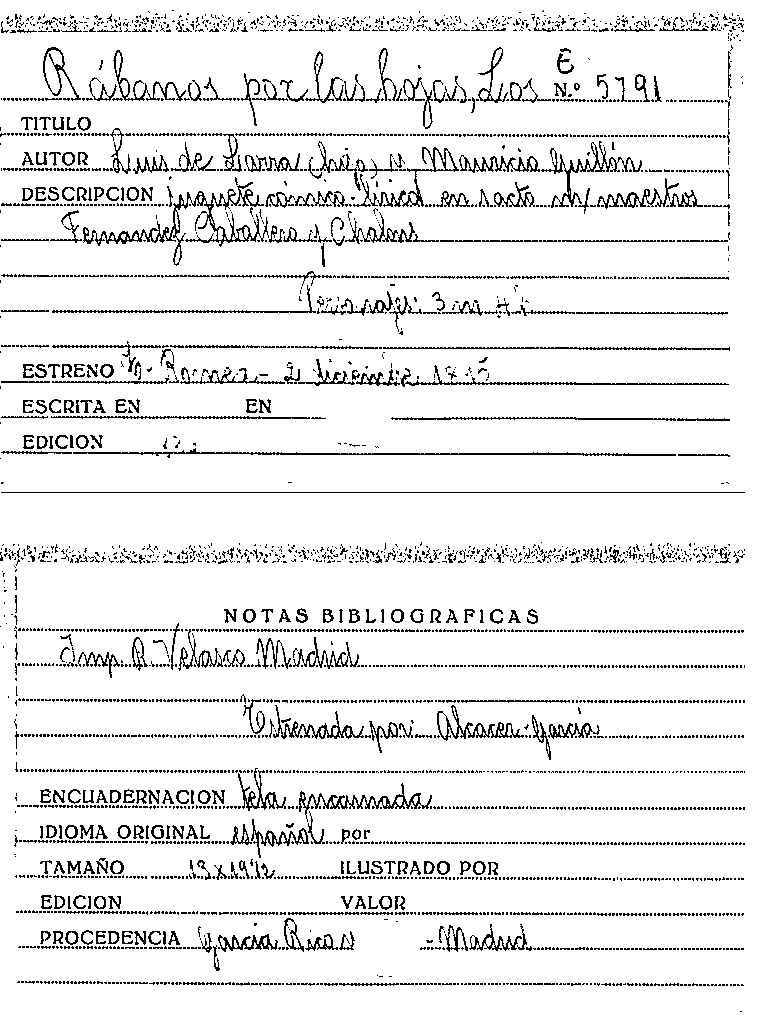 E
Rábanos por las hojas, Los N.º 5791
TITULO
AUTOR Luis de Larra (hijo) y Mauricio Gullón
DESCRIPCION juguete cómico-lírico en 1 acto m/ maestros
Fernandez Caballero y Chalons
Personajes: 3 m 4 h
ESTRENO Romea - 2 diciembre
ESCRITA EN EN
EDICION
NOTAS BIBLIOGRAFICAS
Imp. R. Velasco Madrid
Estrenada por: Alcacer-García
ENCUADERNACION tela encarnada
IDIOMA ORIGINAL español por
TAMAÑO 13 x 19 1/2 ILUSTRADO POR
EDICION VALOR
PROCEDENCIA García Rico y - Madrid